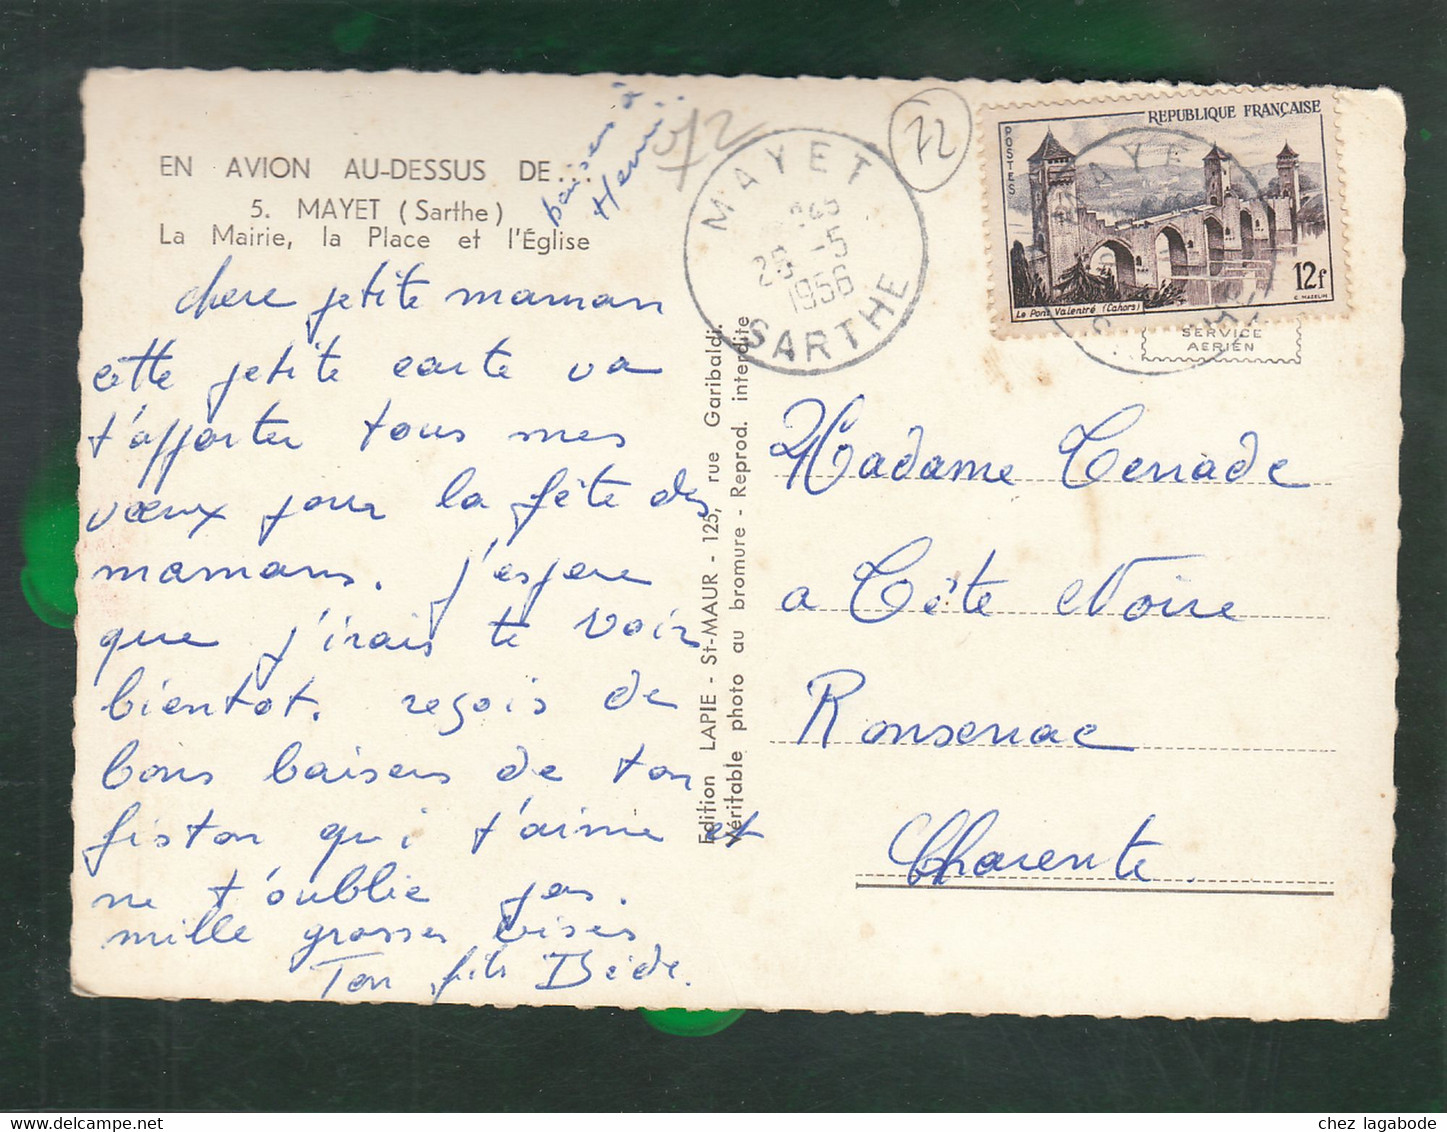 EN AVION AU-DESSUS DE...
5. MAYET (Sarthe)
La Mairie, la Place et l'Église
baisers à
Henri..
chere petite maman
cette petite carte va
t'apporter tous mes
vœux pour la fête des
mamans. j'espere
que j'irais te voir
bientot. reçois de
bons baisers de ton
fiston qui t'aime et
ne t'oublie pas.
mille grosses bises
Ton fils Dédé.
Edition LAPIE - St-MAUR - 125, rue Garibaldi.
Véritable photo au bromure - Reprod. interdite
72
72
MAYET
26 -5
1956
SARTHE
REPUBLIQUE FRANÇAISE
POSTES
12f
Le Pont Valentré (Cahors)
C. MAZELIN
MAYET
SERVICE
AERIEN
Madame Terrade
a Côte Noire
Ronsenac
Charente.
chez lagabode